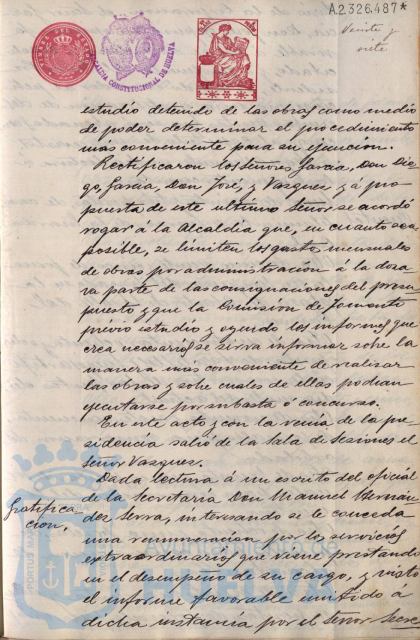 A2.326.487*
Veinte y
siete
ALCALDIA CONSTITUCIONAL DE HUELVA
estudio detenido de las obras como medio
de poder determinar el procedimiento
más conveniente para su ejecucion.
Rectificaron los Señores Garcia, Don Die-
go, Garcia, Don José, y Vazquez y á pro-
puesta de este ultimo Señor se acordó
rogar á la Alcaldia que, en cuanto sea
posible, se limiten los gastos mensuales
de obras por administracion á la doza
va parte de las consignaciones del presu
puesto y que la Comisión de Fomento
previo estudio y oyendo los informes que
crea necesarios se sirva informar sobre la
manera mas conveniente de realizar
las obras y sobre cuales de ellas podian
ejecutarse por subasta ó concurso.
En este acto y con la venia de la pre-
sidencia salió de la Sala de Sesiones el
Señor Vazquez.
Gratifica-
cion,
Dada lectura á un escrito del oficial
de la Secretaria Don Manuel Hernán
dez Serra, interesando se le conceda
una remuneracion por los servicios
extraordinarios que viene prestando
en el desempeño de su cargo, y visto
el informe favorable emitido a
dicha instancia por el Señor Secre
PORTUS